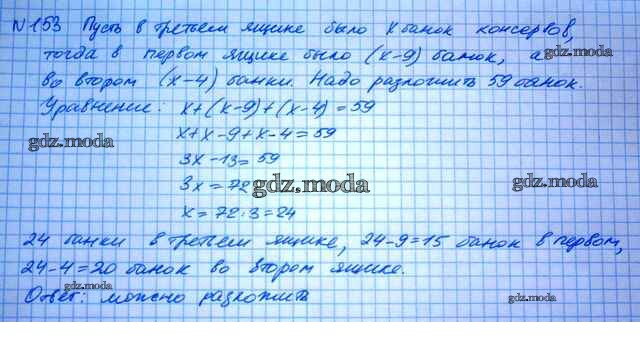 №153 Пусть в третьем ящике было х банок консервов,
тогда в первом ящике было (х-9) банок, а
во втором (х-4) банки. Надо разложить 59 банок.
Уравнение: х+(х-9)+(х-4)=59
gdz.moda
х+х-9+х-4=59
gdz.moda
3х-13=59
gdz.moda
3х=72
gdz.moda
gdz.moda
х=72:3=24
24 банки в третьем ящике, 24-9=15 банок в первом,
24-4=20 банок во втором ящике.
gdz.moda
Ответ: можно разложить
gdz.moda